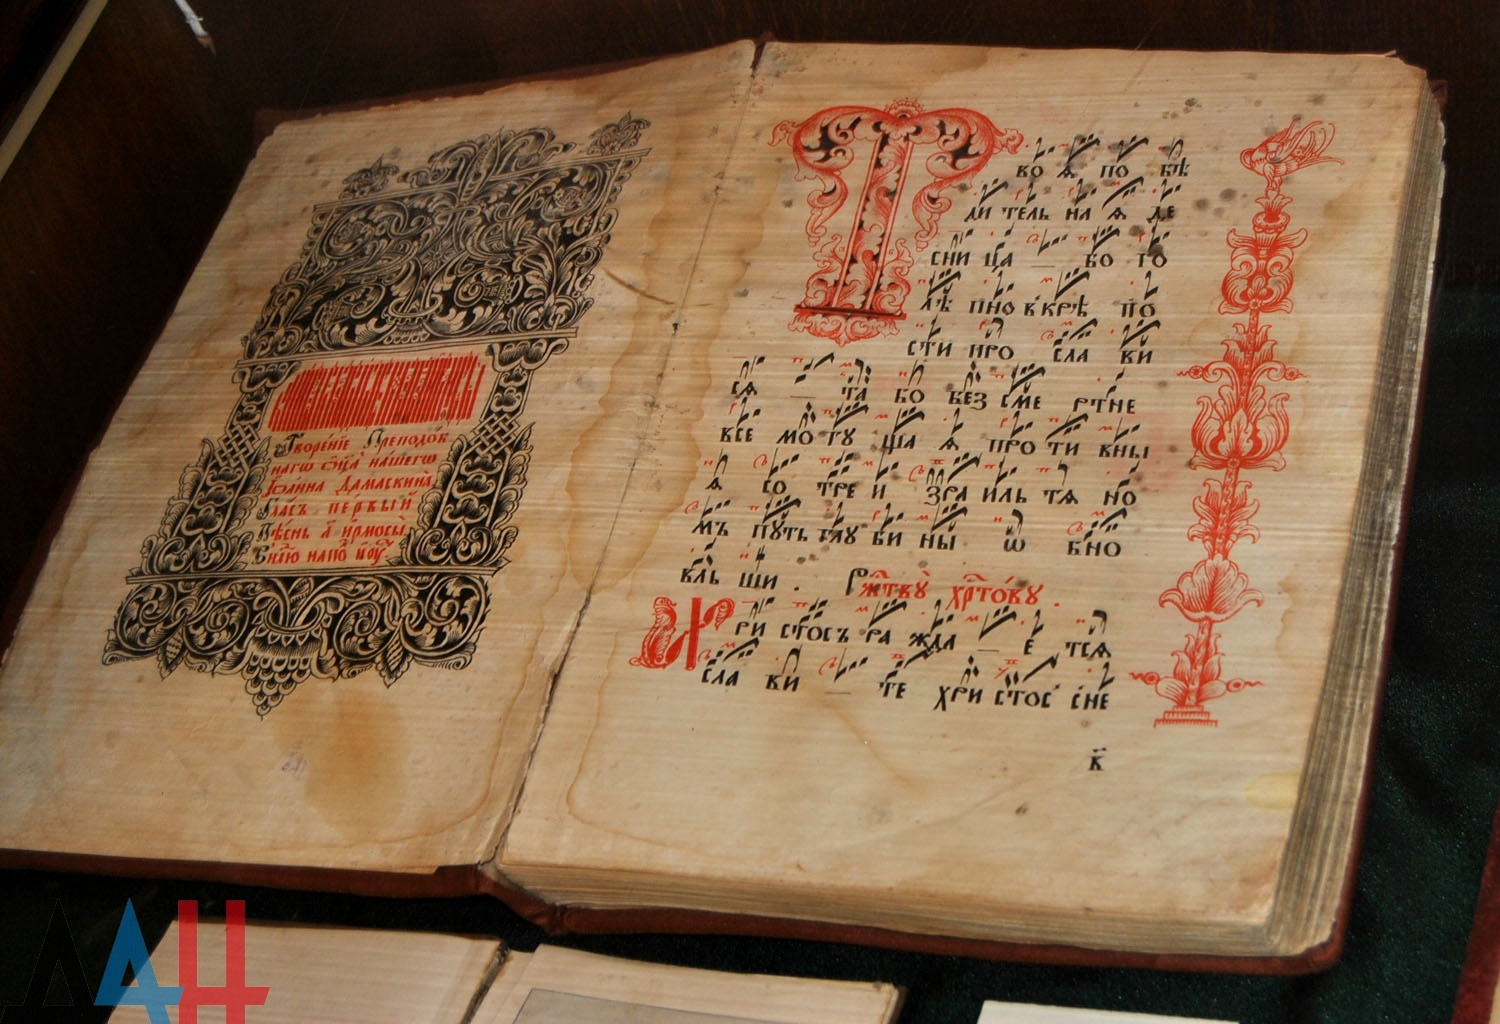 Творе́нїе Преподоб
нагѡ ѻц҃а̀ на́шегѡ
Іѡа́нна Дамаскина̀
Гласъ первый
Пѣснь а҃ ірмосы̀
Т во ѧ по бѣ
ди тель на ѧ де
сни ца _ бо го
лѣ пно в крѣ по
сти про сла ви
сѧ _ та бо без сме ртне
все мо гу ща ѧ про ти вны
ѧ со тре и зра иль тѧ но
мъ путь глу би ны ѿ вно
вль ши .
Ржⷭ҇тву̀ хрⷭ҇то́ву .
Х ри стосъ ра жда _ е тсѧ
сла ви _ те хри стос сне
к҃
ДАН